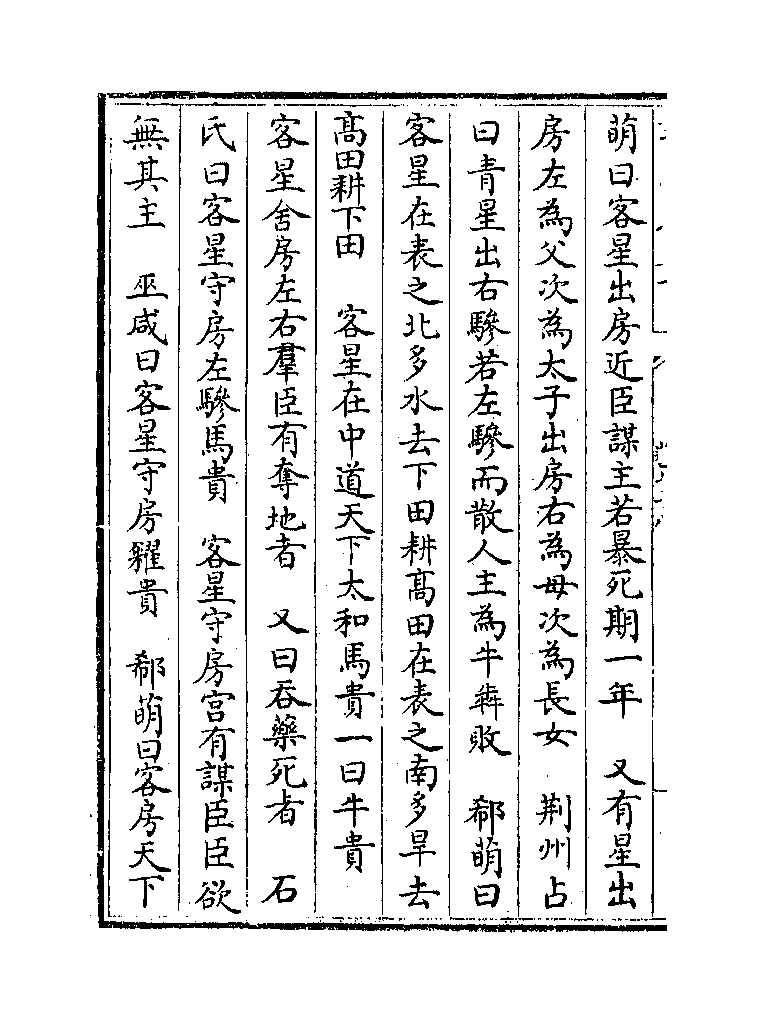 萌曰客星出房近臣謀主若暴死期一年　又有星出
房左為父次為太子出房右為母次為長女　荆州占
曰青星出右驂若左驂而散人主為牛犇敗　郗萌曰
客星在表之北多水去下田耕髙田在表之南多旱去
髙田耕下田　客星在中道天下太和馬貴一曰牛貴
客星舍房左右羣臣有奪地者　又曰吞藥死者　石
氏曰客星守房左驂馬貴　客星守房宫有謀臣臣欲
無其主　巫咸曰客星守房糴貴　郗萌曰客房天下